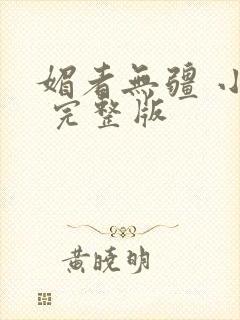 媚者無疆 小
完整版
黄曉明